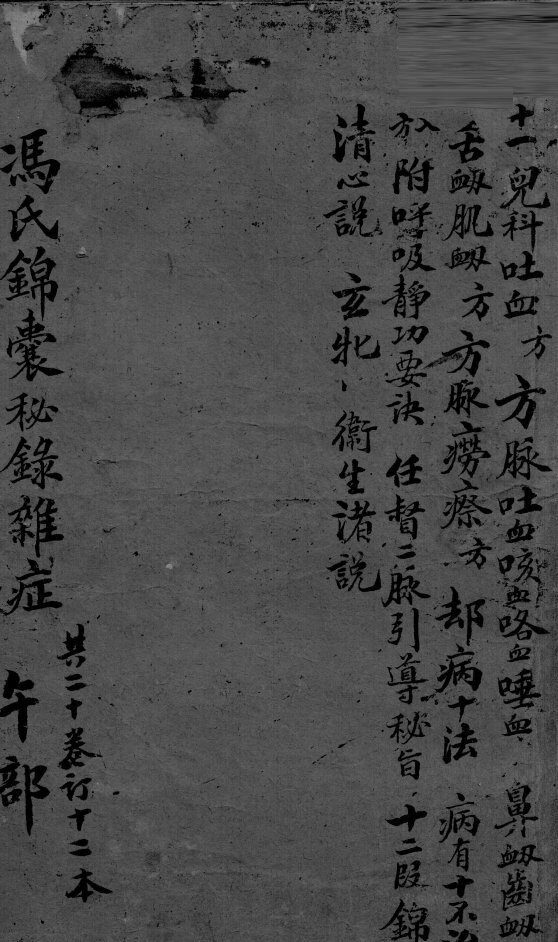 十一兒科吐血方 方脉吐血咳血咯血唾血 鼻衂齒衂
舌衂肌衂方 方脉癆瘵方 却病十法 病有十不治
附呼吸靜功要訣 任督二脉引導秘旨 十二段錦
清心說 玄牝 衛生諸說
馮氏錦囊秘錄雜症 午部
共二十卷訂十二本